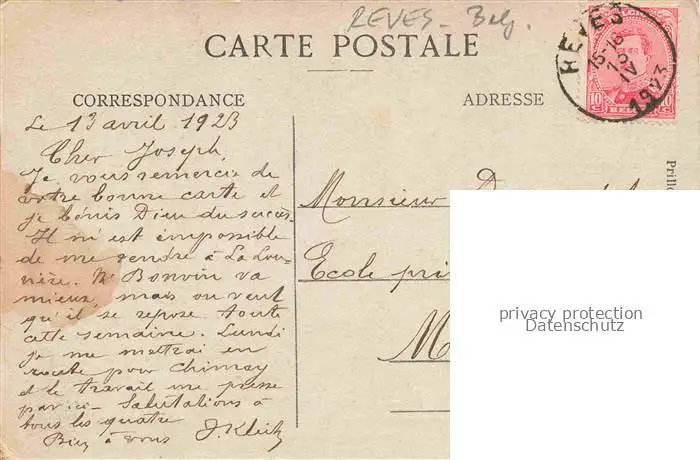 REVES - Belg.
CARTE POSTALE
REVES
15-16
13
IV
1923
10 C BELG 10 C
CORRESPONDANCE
ADRESSE
Le 13 avril 1923
Cher Joseph,
Je vous remercie de
votre bonne carte et
je bénis Dieu du succès.
Il m'est impossible
de me rendre à La Lou-
vière. Mr Bonvin va
mieux, mais on veut
qu'il se repose toute
cette semaine. Lundi
je me mettrai en
route pour Chimay
et le travail me presse
par ici - Salutations à
tous les quatre
Bien à vous J.
Monsieur D
Ecole pri
M
Prill
privacy protection
Datenschutz